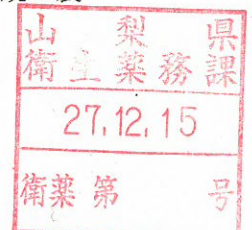 山梨県
衛生薬務課
27.12.15
衛薬第 号